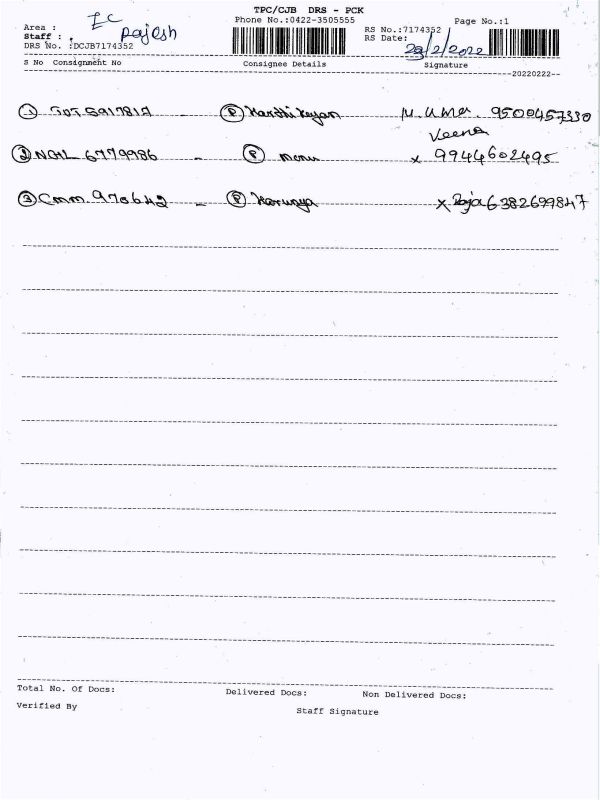 TPC/CJB DRS - PCK
Phone No.:0422-3505555 Page No.:1
Area : EC
Staff : Rajesh
RS No.:7174352
DRS No. :DCJB7174352
RS Date: 23/2/2022
S No Consignment No Consignee Details Signature
20220222
① TOT 5917817 - Ⓟ Kardhikeyan M. Uma. 9500457330
Veena
② NGL 6779986 - Ⓟ monu x 9944602495
③ Cmm. 970642 - Ⓟ Karunya x Roja 6382699847
Total No. Of Docs: Delivered Docs: Non Delivered Docs:
Verified By Staff Signature